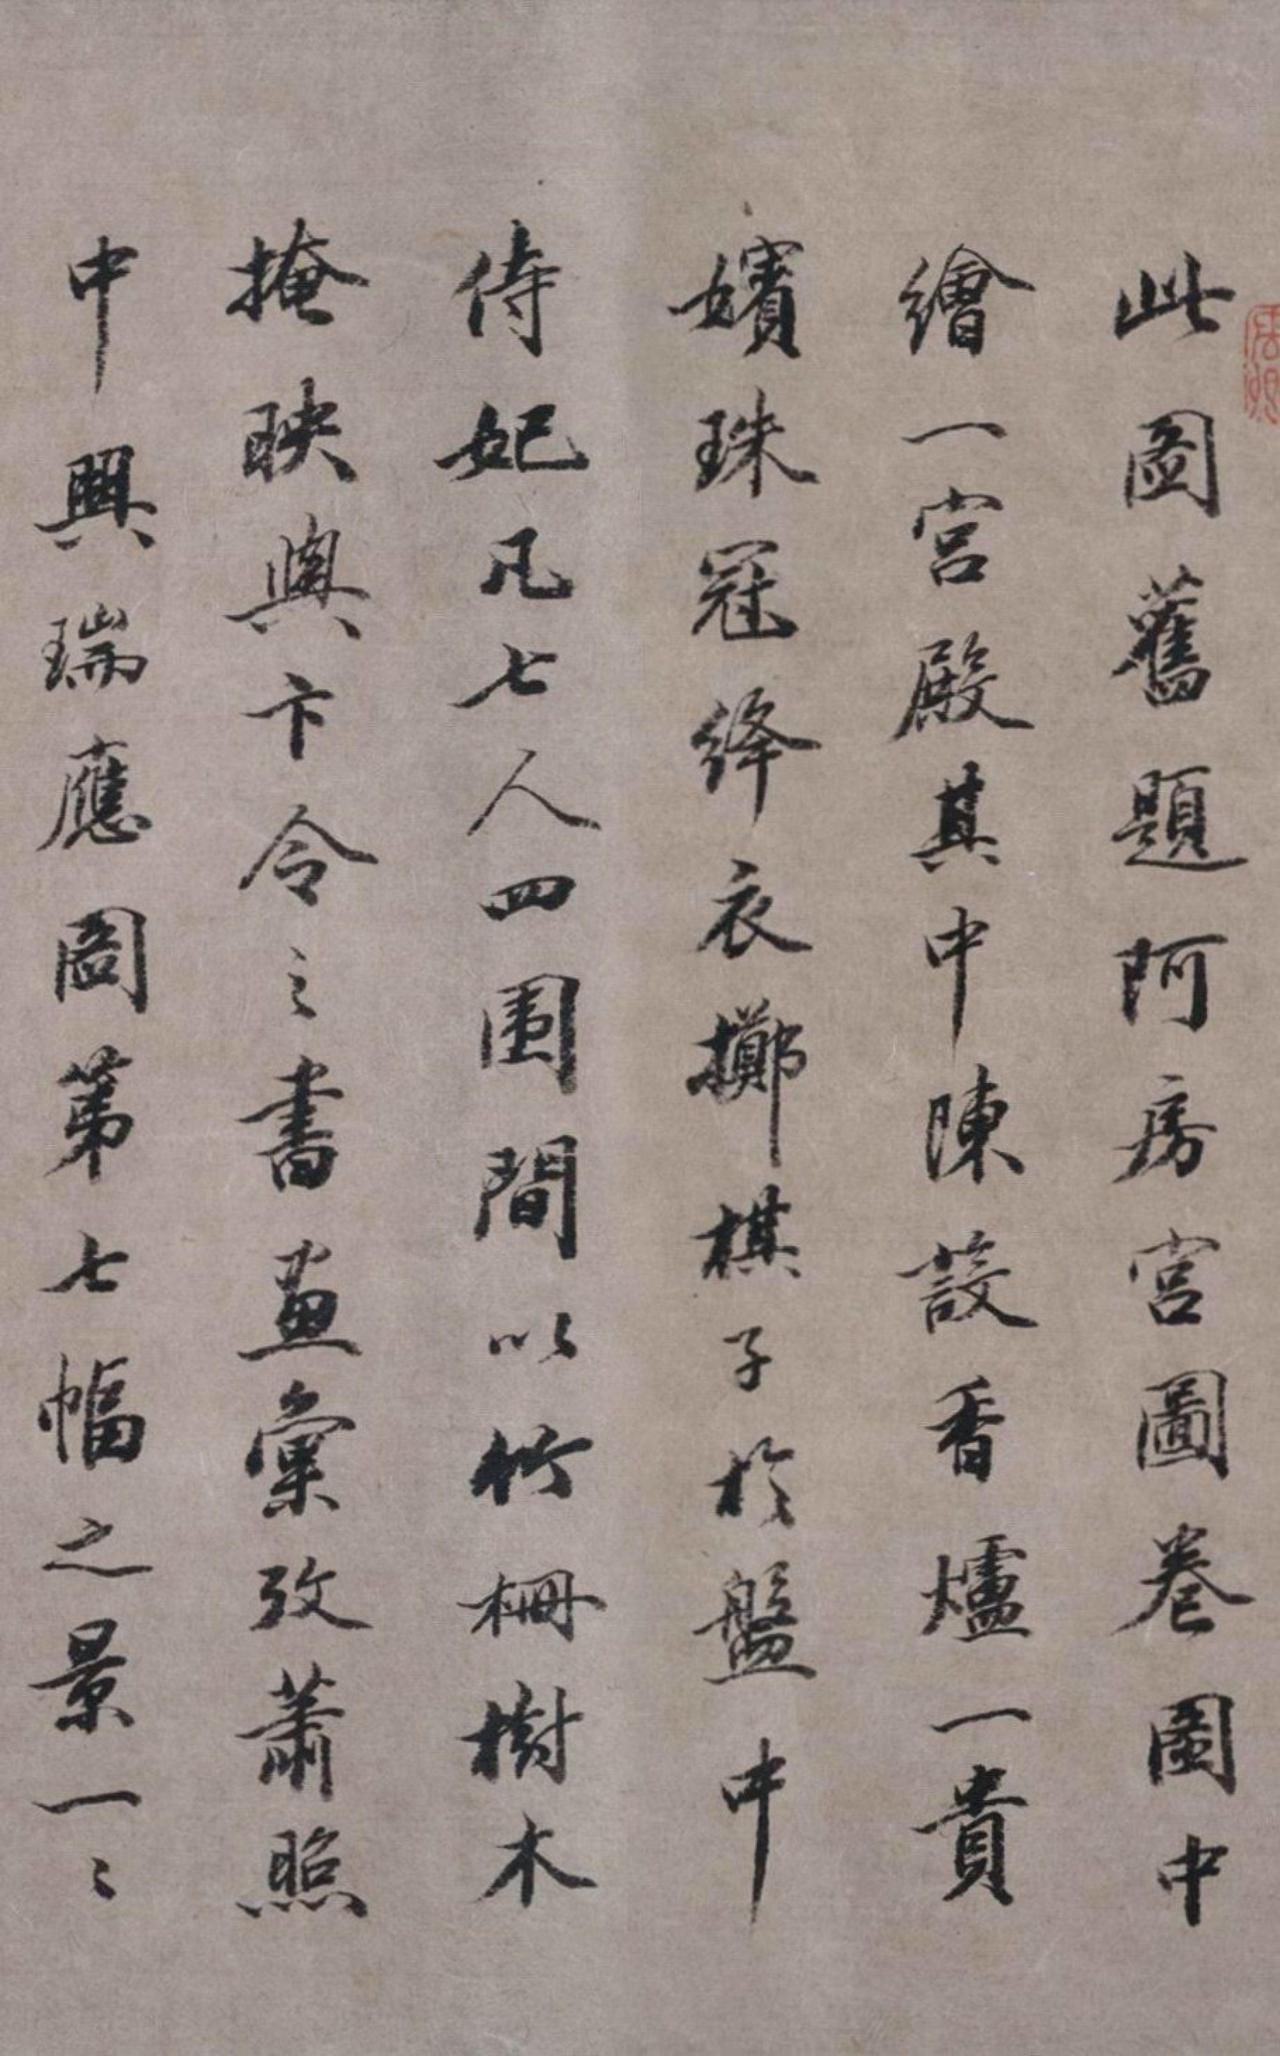 此圖舊題阿房宮圖卷圖中
繪一宮殿其中陳設香爐一貴
嬪珠冠絳衣擲棋子於盤中
侍妃凡七人四圍間以竹柵樹木
掩映與卞令之書畫彙攷蕭照
中興瑞應圖第七幅之景一〻